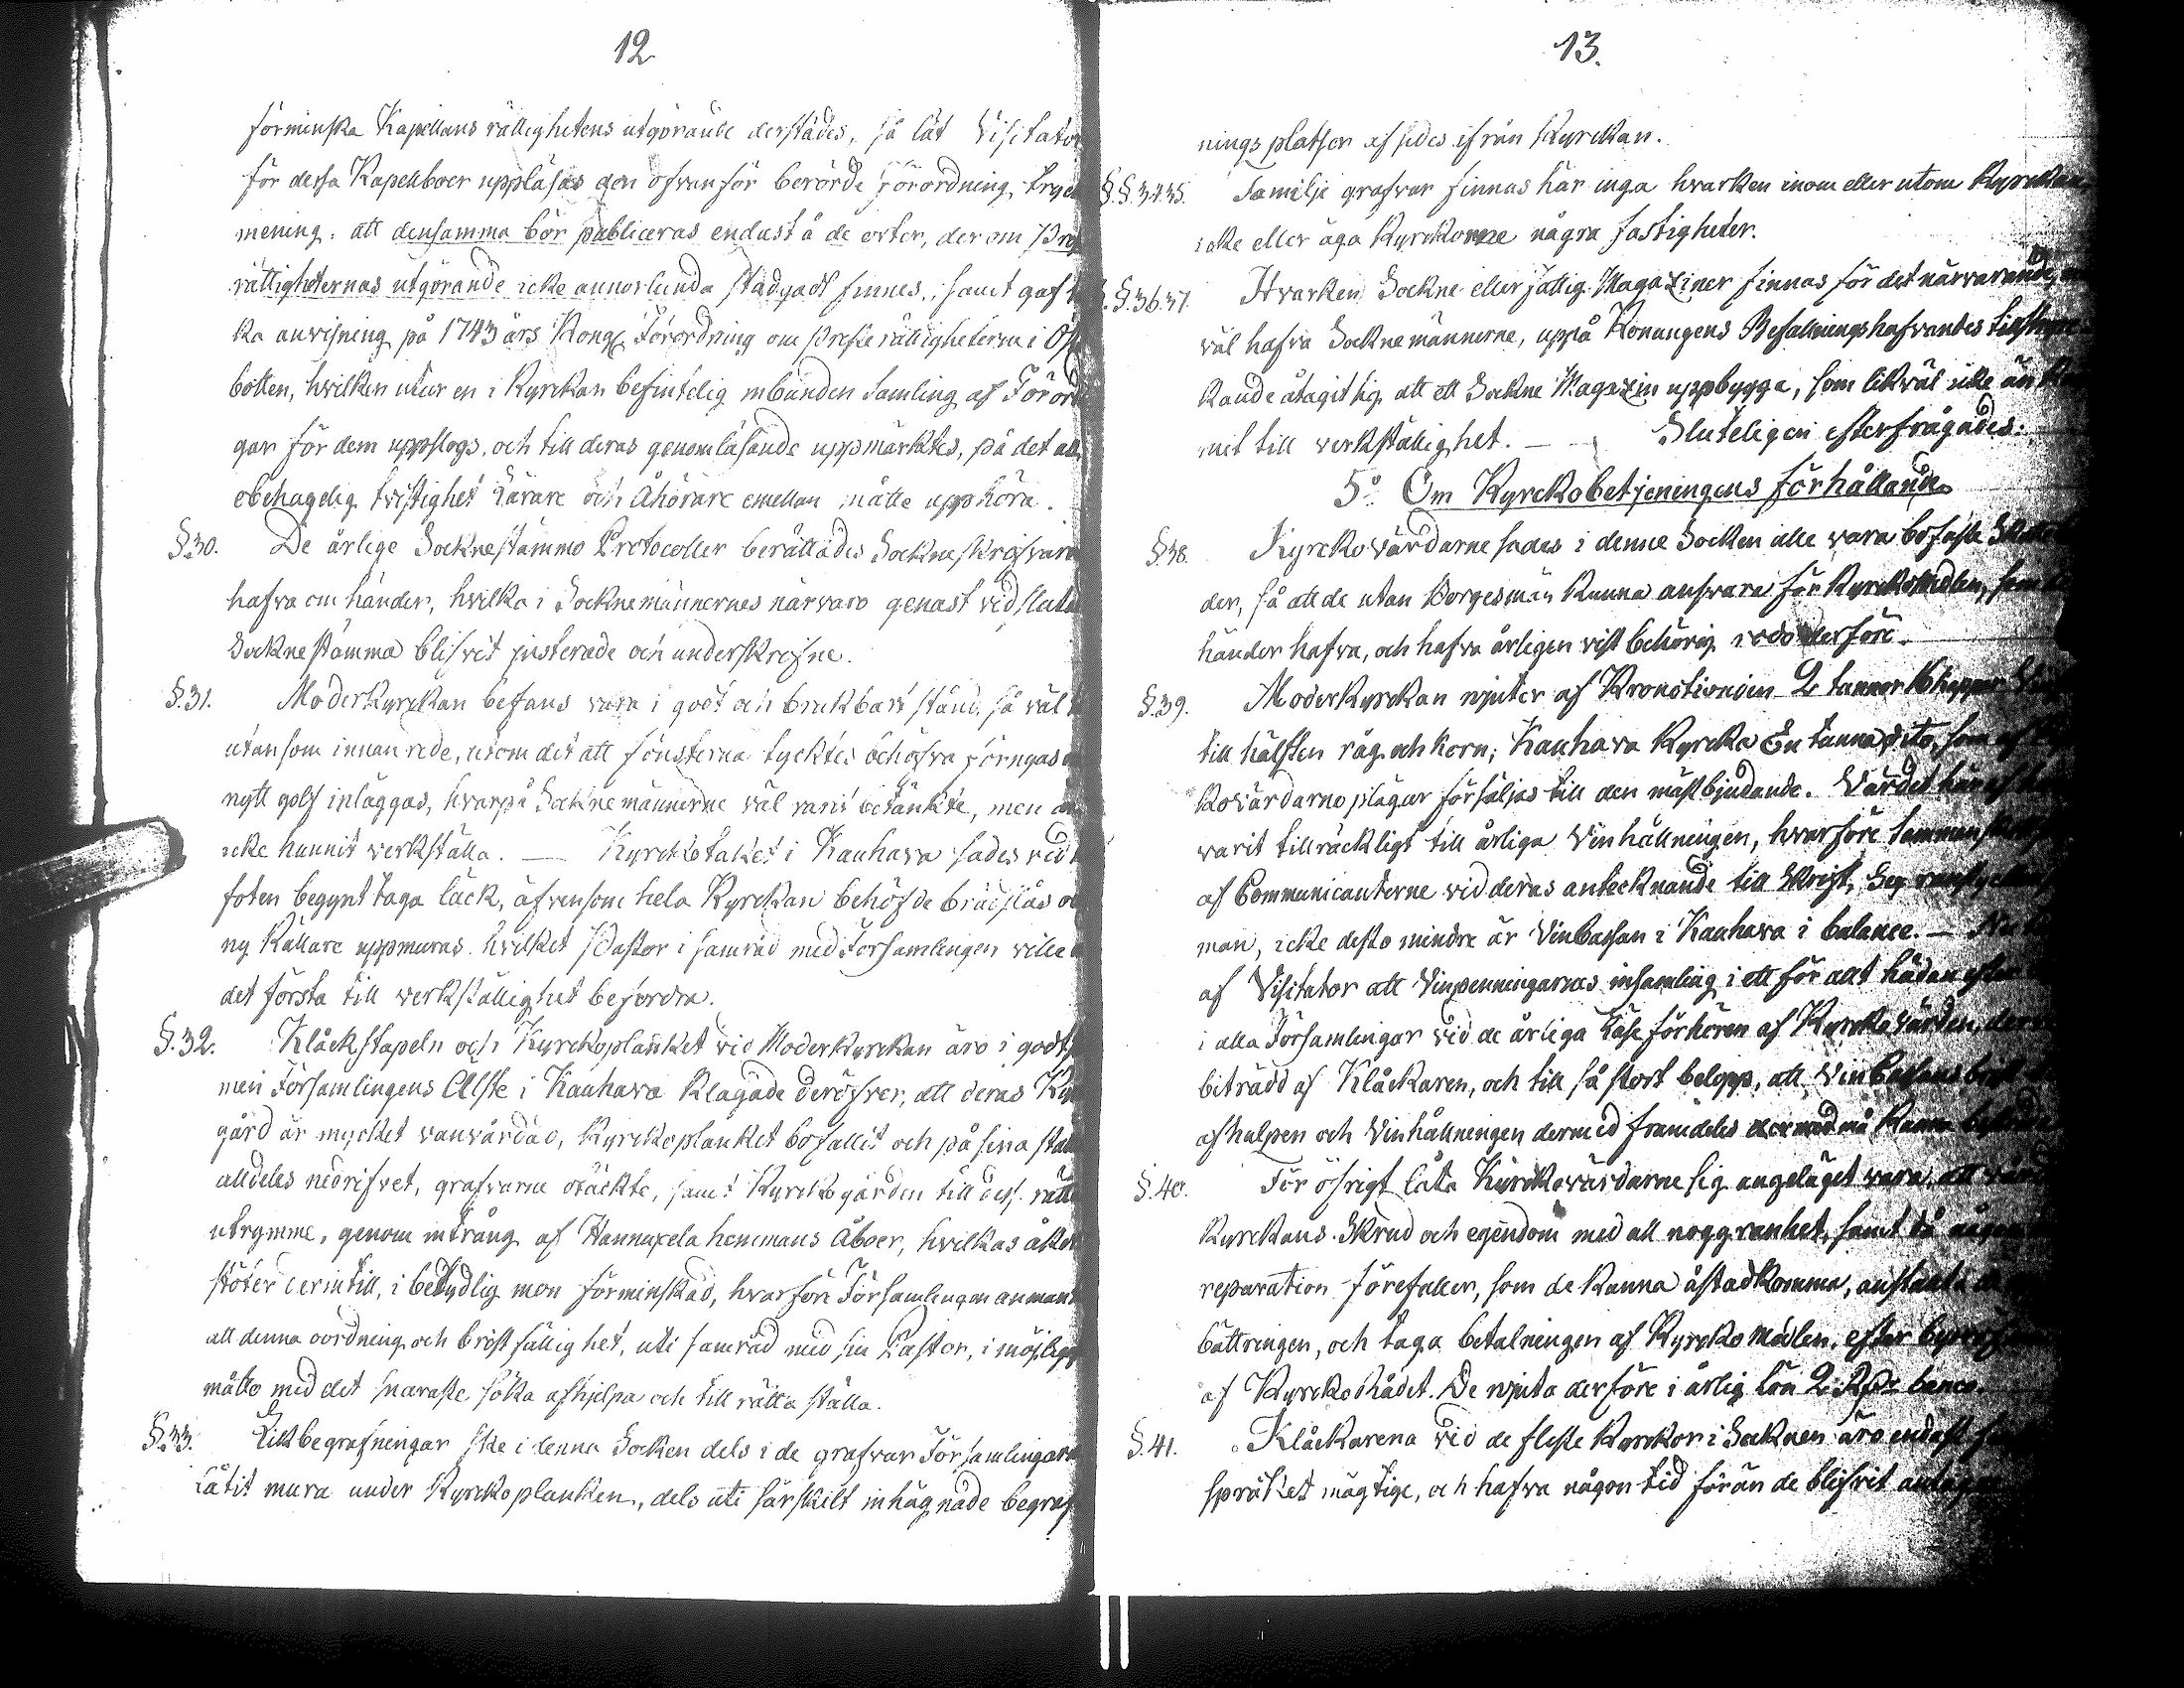 12
förminska Kapellans rättighetens utgörande derstädes, så lät Visitator
för dessa Kapellboer uppläsas den ofvanför berörde Förordning,
mening: att densamma bör publiceras endast å de orter, der om
rättigheternas utgörande icke annorlunda stadgadt finnes, samt gaf
ka anvisning på 1743 års Kongl. Förordning om Presterättigheterna i
botten, hvilken utur en i Kyrckan befintelig inbunden samling af
gar för dem uppslogs, och till deras genomläsande uppmärktes, på det all
obehagelig tvistighet Lärare och Åhörare emellan måtte upphöra.
§30. De årlige Socknestämmo Protocoller berättades Sockneskrifvaren
hafva om händer, hvilka i Socknemännernes närvaro genast vid
Sockne stämma blifvit justerade och underskrifne.
§.31. Moderkyrckan befans vara i godt och brukbart stånd, så väl
utan som innan rede, utom det att fönsterna tycktes behöfva förnyas
nytt golf inläggas, hvarpå Socknemännerne väl varit betänkte, men
icke hunnit verkställa. — Kyrckotaket i Kauhava sades vid
foten begynt taga läck, äfvensom hela Kyrckan behöfde brädslås
ny Källare uppmuras, hvilket Pastor i samråd med Församlingen ville
det första till verkställighet befordra.
§.32. Klåckstapeln och Kyrckoplanket vid Moderkyrckan äro i godt
men Församlingens Älste i Kauhava klagade deröfver, att deras
gård är mycket vanvårdad, Kyrckoplanket bofallit och på sina
alldeles nedrifvet, grafvarne otäckte, samt Kyrckogården till dess
utrymme, genom intrång af Hannuxela hemmans Åboer, hvilkas
stöter derintill, i betydlig mon förminskad, hvarföre Församlingen
att denna oordning och bristfällighet, uti samråd med sin Pastor, i
måtto med det snaraste söka afhjelpa och till rätta ställa.
§.33. Likbegrafningar ske i denna Socken dels i de grafvar
låtit mura under Kyrckoplanken, dels uti särskilt inhägnade
13.
nings platser afsides ifrån Kyrckan.
§.§.34.35. Familje grafvar finnas här inga hvarken inom eller utom Kyrckan,
icke eller äga Kyrckorne några fastigheter.
§.36.37. Hvarken Sockne eller fattig Magaziner finnas för det närvarande,
väl hafva Socknemännerne, uppå Konungens Befallningshafvandes
kande åtagit sig att ett Sockne Magazin uppbygga, som likväl icke än
mit till verkställighet. — Sluteligen efterfrågades:
5:o Om Kyrckobetjeningens förhållande
§.38. Kyrckovärdarne sades i denne Socken alle vara bofaste
der, så att de utan Borgesmän kunna ansvara för Kyrckomedlen, som
händer hafva, och hafva årligen vist behörig redo derföre.
§.39. Moderkyrckan njuter af Kronotionden 2 tunnor
till hälften råg och korn, Kauhava Kyrcka En tunna dito, som af
kovärdarne plägar försäljas till den mästbjudande. Värdet
varit tillräckligt till årliga Vinhållningen, hvarföre
af Communicanterne vid deras antecknande till Skrift,
man, icke desto mindre är Vinkassan i Kauhava i balance. —
af Visitator att Vinpenningarnes insamling i ett för allt hädan efter
i alla Församlingar vid de årliga Läseförhören af Kyrckovärden,
biträdd af Klåckaren, och till så stort belopp, att Vinkassans brist
afhulpen och Vinhållningen dermed framdeles må kunna
§.40. För öfrigt låta Kyrckovärdarne sig angeläget vara, att
Kyrckans Skrud och egendom med all noggranhet, samt då
reparation förefaller, som de kunna åstadkomma, anstalta
bättringen, och taga betalningen af Kyrckomedlen, efter
af Kyrckorådet. De njuta derföre i årlig lön 2 Rdr banco.
§.41. Klåckarena vid de fleste Kyrckor i Socknen äro endast
språket mägtige, och hafva någon tid förän de blifvit